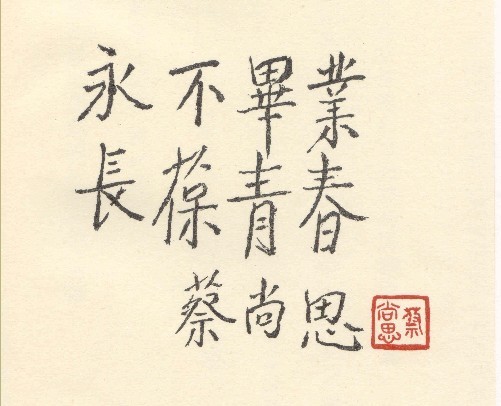 永不畢業
長葆青春
蔡尚思
蔡尚思